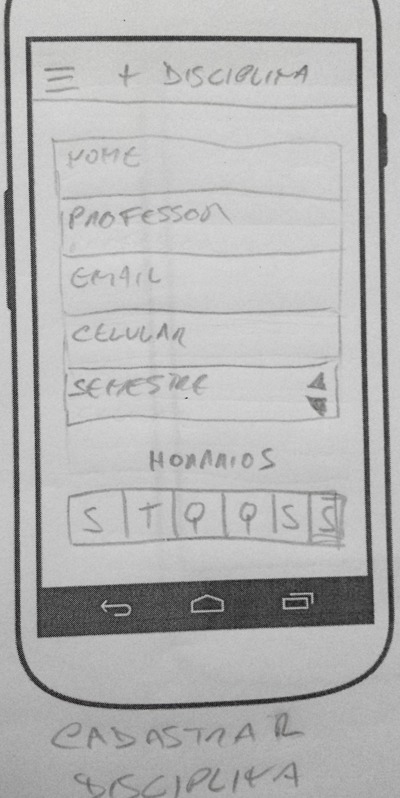 + DISCIPLINA
NOME
PROFESSOR
EMAIL
CELULAR
SEMESTRE
HORARIOS
S T Q Q S S
CADASTRAR
DISCIPLINA